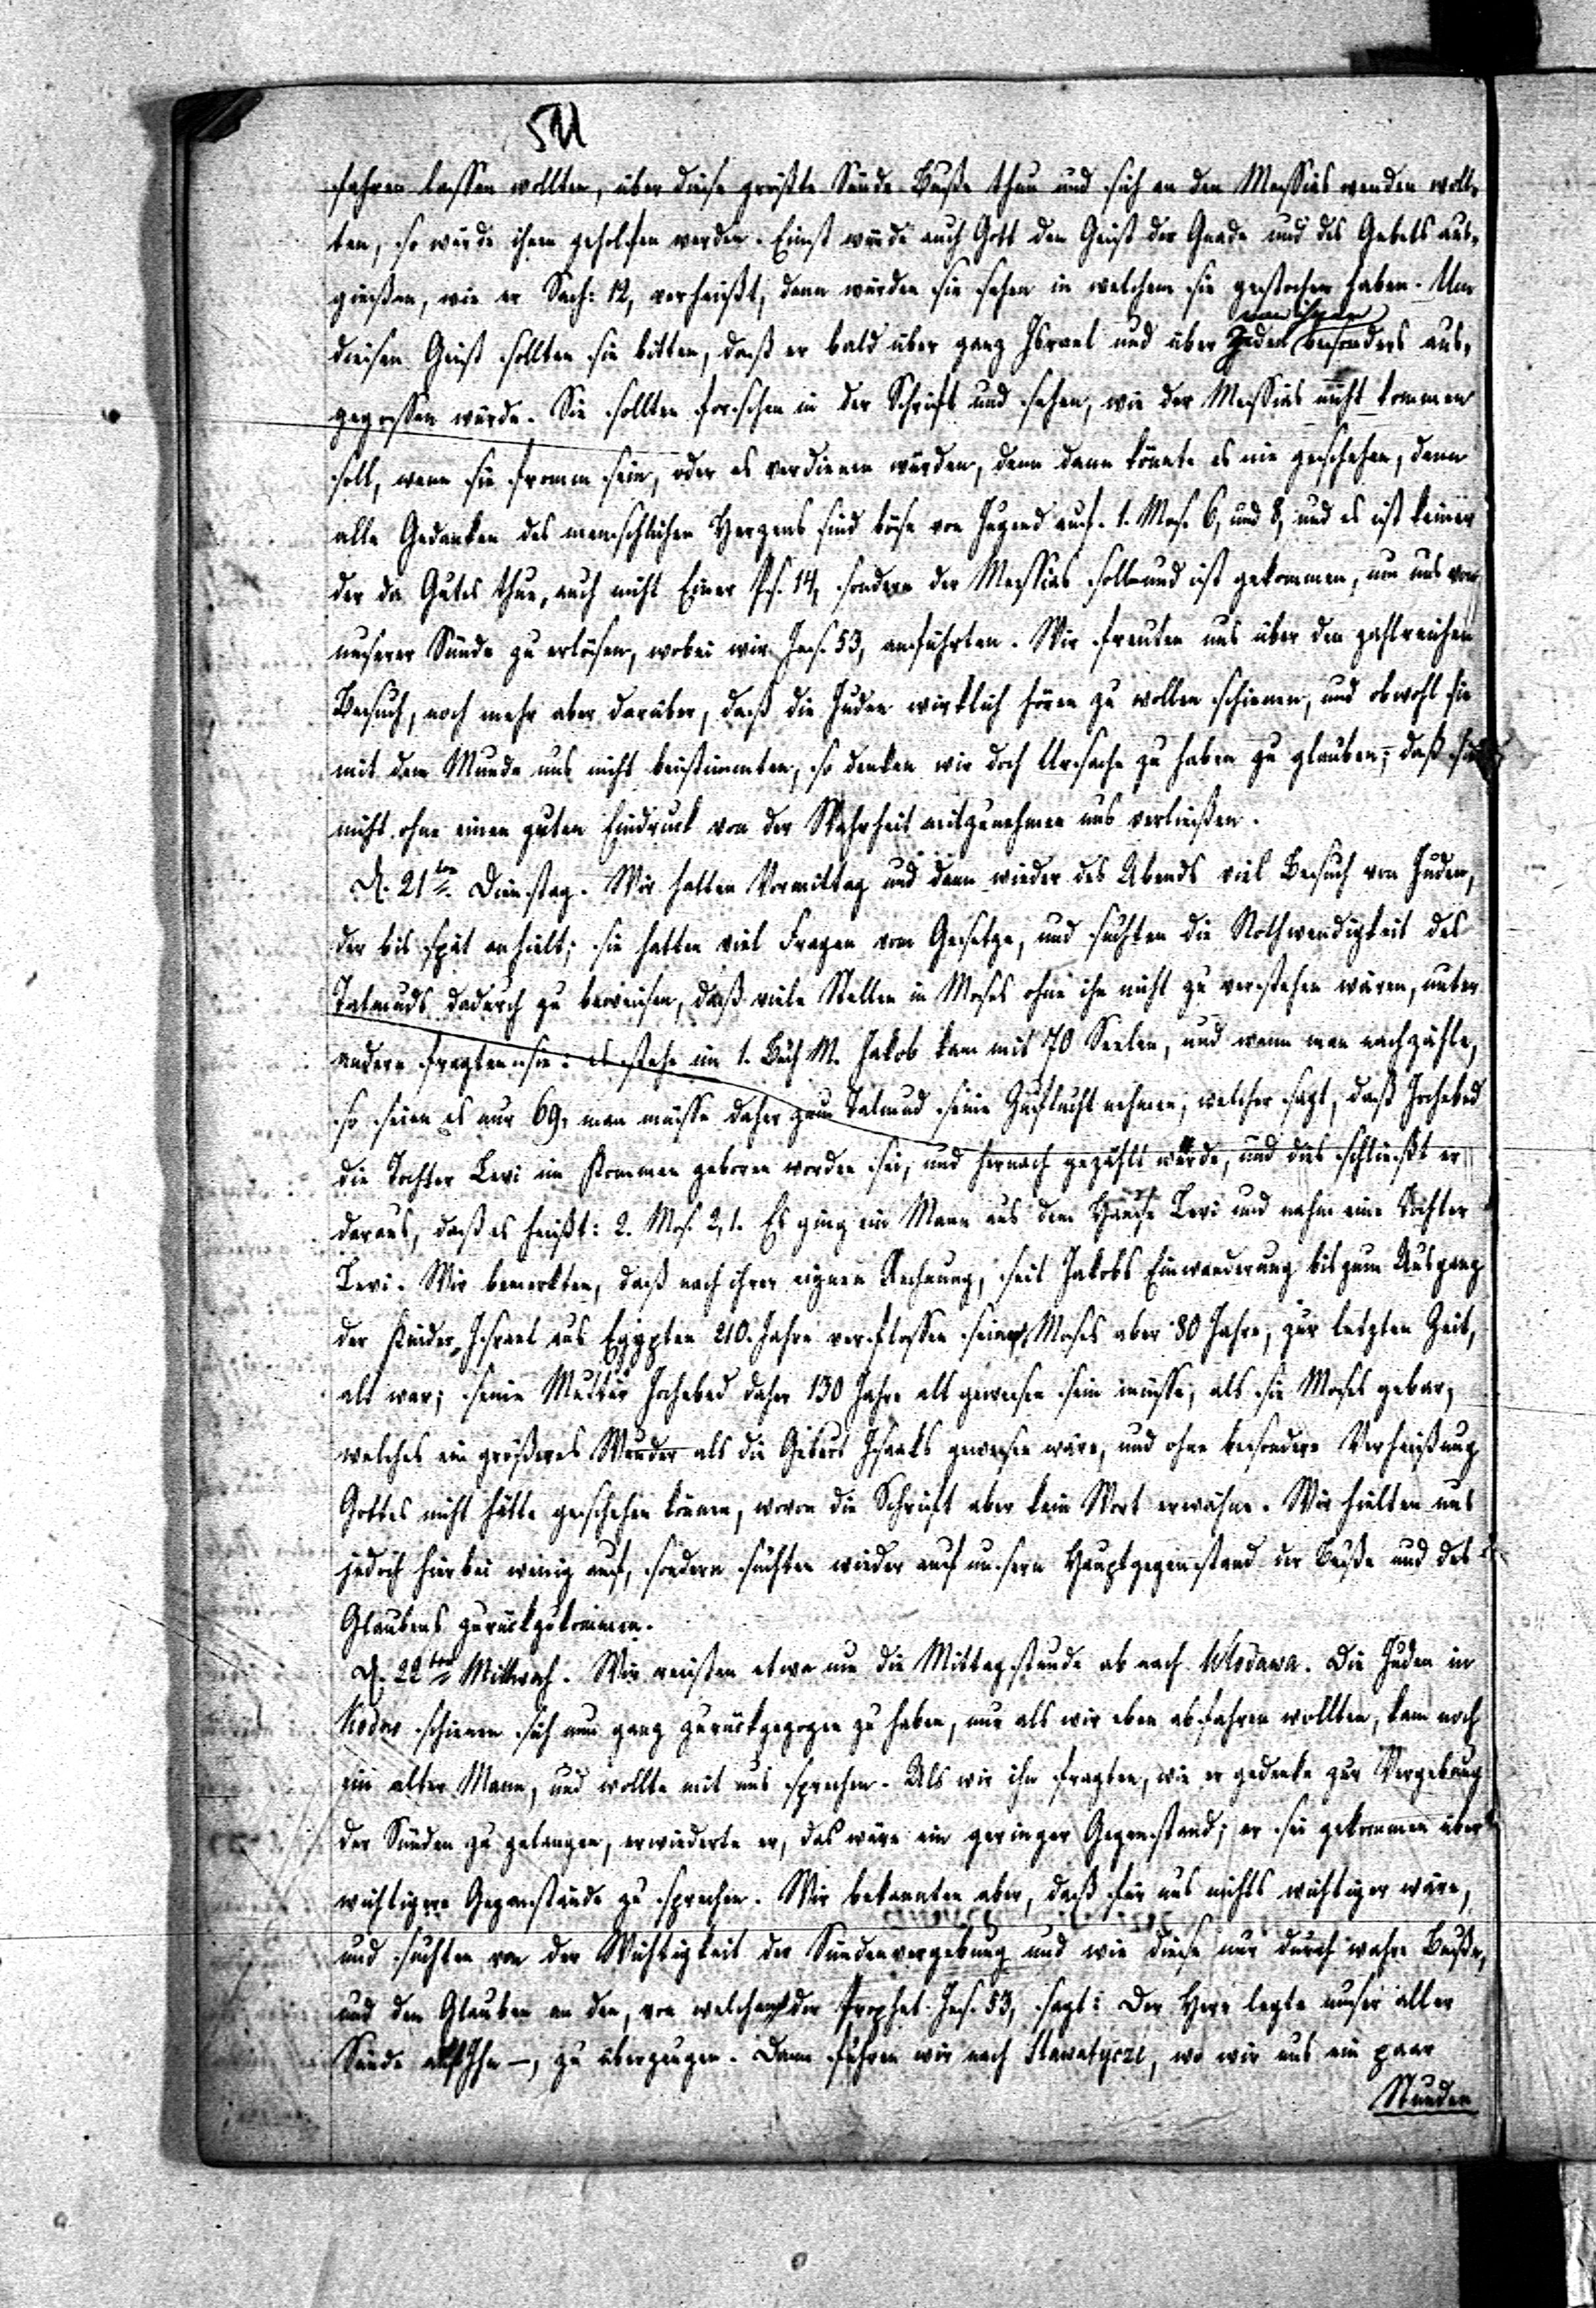 fahren lassen wollten, über diese größte Sünde Buße thun und sich an den Messias wenden woll-
ten, so würde ihnen geholfen werden. Einst würde auch Gott den Geist der Gnade und des Gebets aus-
gießen, wie er Sach: 12, verheißt, dann würden sie sehen in welchem sie gestochen haben. Um
von ihnen
diesen Geist sollten sie bitten, daß er bald über ganz Israel und über Jeden besonders aus-
gegossen würde. Sie sollten forschen in der Schrift und sehen, wie der Messias nicht kommen
soll, wenn sie fromm sein, oder es verdienen würden, denn dann könnte es nie geschehen, denn
alle Gedanken des menschlichen Herzens sind böse von Jugend auf. 1. Mos. 6, und 8, und es ist keiner
der da Gutes thue, auch nicht Einer Ps. 14, sondern der Messias soll und ist gekommen, um uns von
unserer Sünde zu erlösen, wobei wir Jes. 53, anführten. Wir freuten uns über den zahlreichen
Besuch, noch mehr aber darüber, daß die Juden wirklich hören zu wollen schienen, und obwohl sie
mit dem Munde uns nicht beistimmten, so denken wir doch Ursache zu haben zu glauben, daß sie
nicht ohne einen guten Eindruck von der Wahrheit mitzunehmen uns verließen.
D. 21ten Dienstag. Wir hatten Vormittag und dann wieder des Abends viel Besuch von Juden,
der bis spät anhielt; sie hatten viel Fragen vom Gesetze, und suchten die Nothwendigkeit des
Talmuds dadurch zu beweisen, daß viele Stellen in Moses ohne ihn nicht zu verstehen wären, unter
andern fragten sie: es stehe im 1. Buch M. Jakob kam mit 70 Seelen, und wenn man nachzähle,
so seien es nur 69, man müsse daher zum Talmud seine Zuflucht nehmen, welcher sagt, daß Jochebed
die Tochter Levi im Kommen geboren worden sei, und hernach gezählt würde, und dies schließt er
daraus, daß es heißt: 2. Mos. 2, 1. Es ging ein Mann aus dem Hause Levi und nahm eine Tochter
Levi. Wir bemerkten, daß nach ihrer eignen Rechnung, seit Jakobs Einwanderung bis zum Ausgang
der Kinder Israel aus Egypten 210. Jahre verflossen seien, Moses aber 80 Jahre, zur letzten Zeit,
alt war; seine Mutter Jochebed daher 130 Jahre alt gewesen sein müsse, als sie Moses gebar,
welches ein größeres Wunder als die Geburt Isaaks gewesen wäre, und ohne besondere Verheißung
Gottes nicht hätte geschehen können, wovon die Schrift aber kein Wort erwähne. Wir hielten uns
jedoch hierbei wenig auf, sondern suchten wieder auf unsern Hauptgegenstand der Buße und des
Glaubens zurückzukommen.
D. 22ten Mittwoch. Wir reisten etwa um die Mittagstunde ab nach Wlodawa. Die Juden in
Kodno schienen sich nun ganz zurückgezogen zu haben, nur als wir eben abfahren wollten, kam noch
ein alter Mann, und wollte mit uns sprechen. Als wir ihn fragten, wie er gedenke zur Vergebung
der Sünden zu gelangen, erwiederte er, das wäre ein geringer Gegenstand; er sei gekommen über
wichtigere Gegenstände zu sprechen. Wir bekannten aber, daß für uns nichts wichtiger wäre,
und suchten von der Wichtigkeit der Sündenvergebung und wie diese nur durch wahre Buße,
und den Glauben an den, von welchem der Prophet Jes. 53, sagt: Der Herr legte unser aller
Sünde auf Ihn –, zu überzeugen. Dann fuhren wir nach Slawatycze, wo wir uns ein paar
Stunden